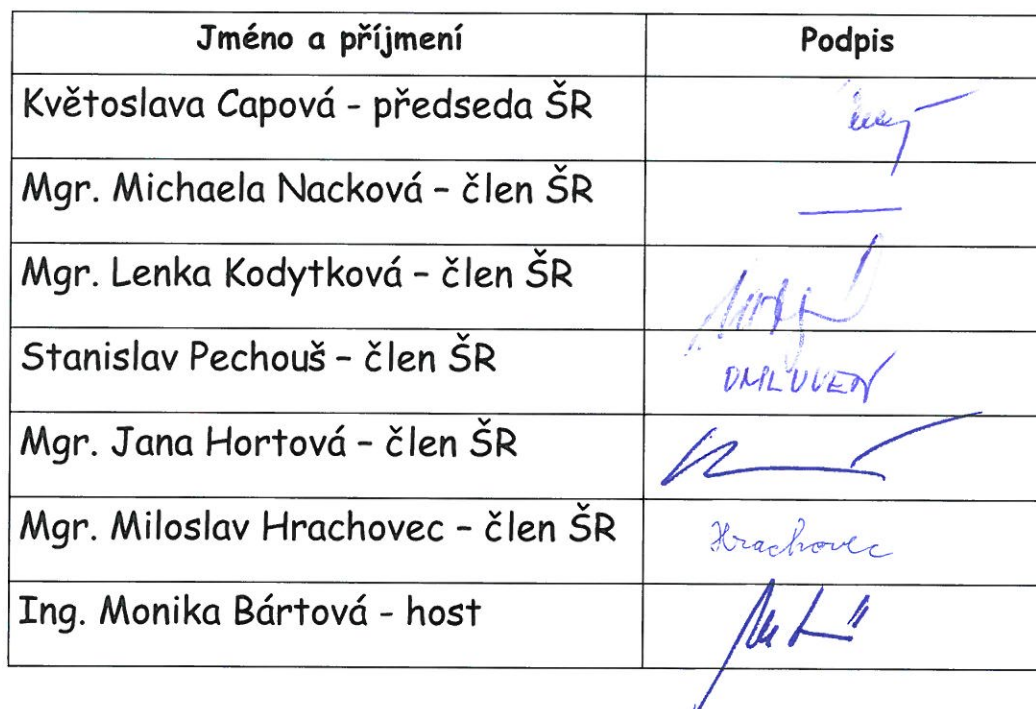 Jméno a příjmení Podpis
Květoslava Capová - předseda ŠR
Mgr. Michaela Nacková – člen ŠR
Mgr. Lenka Kodytková – člen ŠR
Stanislav Pechouš – člen ŠR OMLUVEN
Mgr. Jana Hortová – člen ŠR
Mgr. Miloslav Hrachovec – člen ŠR Hrachovec
Ing. Monika Bártová - host